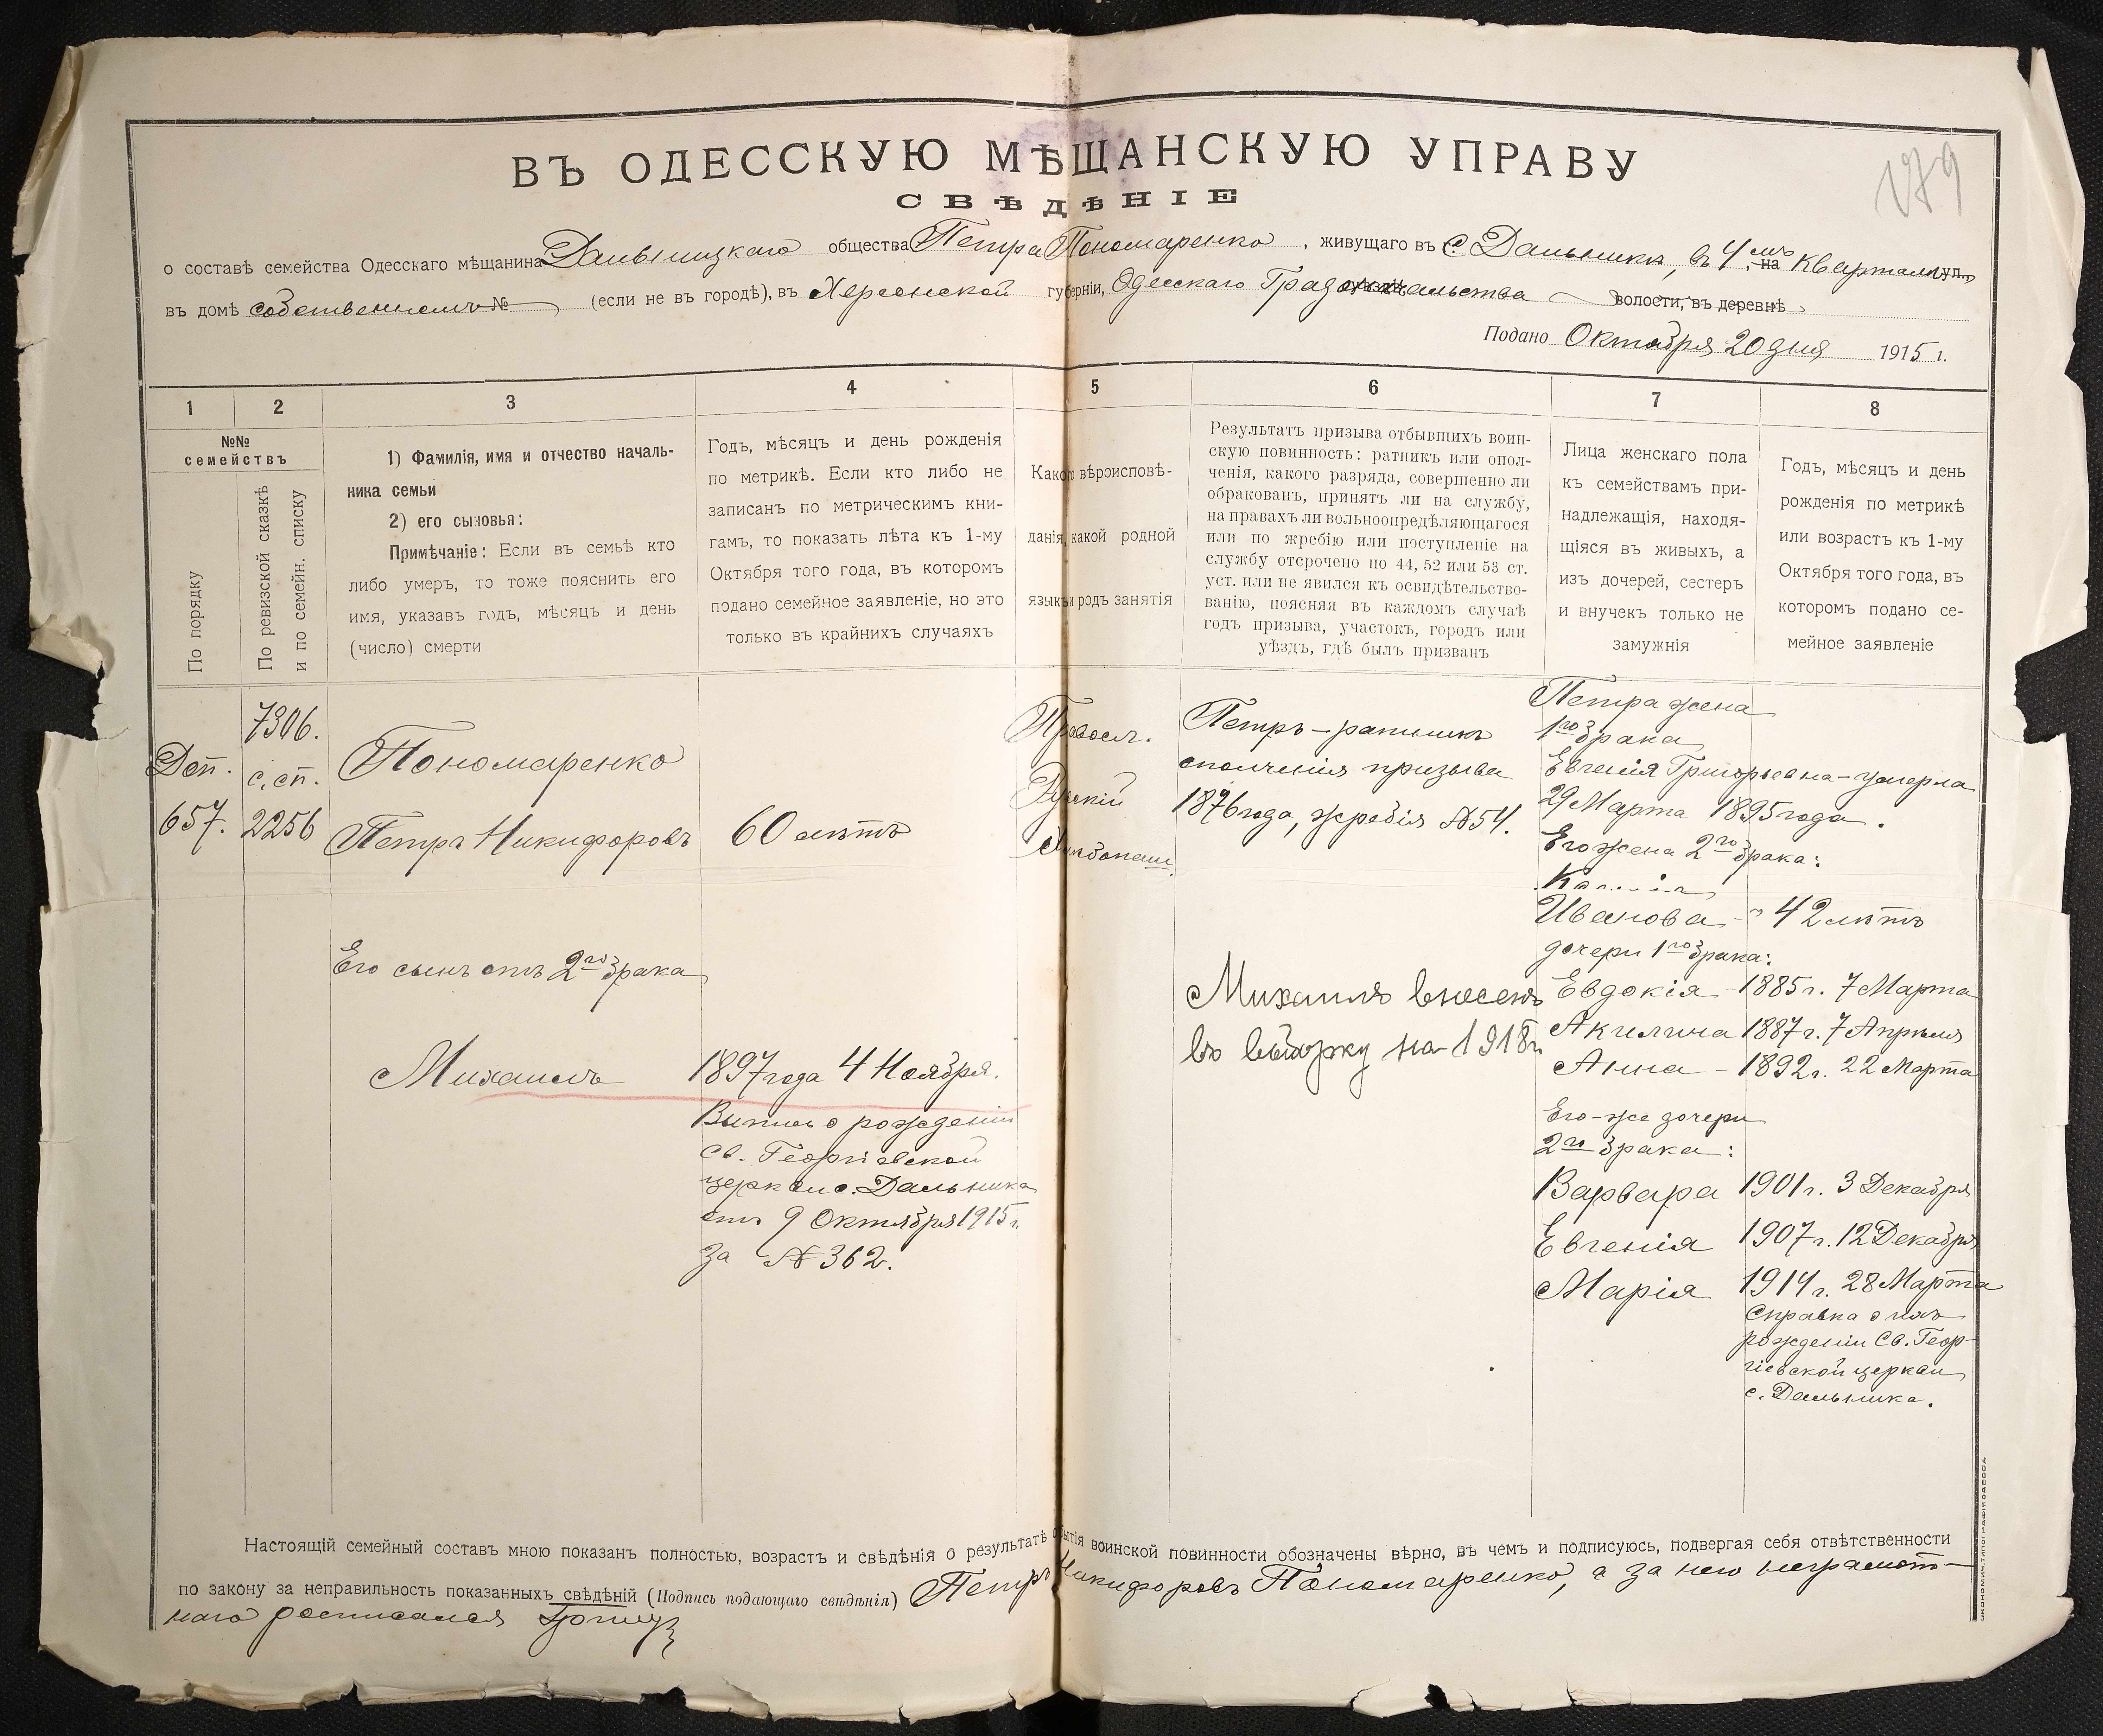 179
ВЪ ОДЕССКУЮ МѢЩАНСКУЮ УПРАВУ
СВѢДѢНІЕ
о составѣ семейства Одесскаго мѣщанина Дальницкаго общества Петра Пономаренко, живущаго въ с Дальники, въ 4мъ, на Кварталѣ ул.,
въ домѣ собственномъ № (если не въ городѣ), въ Херсонской губерніи, Одесскаго Градоначальства волости, въ деревнѣ
Подано Октября 20 дня 1915 г.
1 2 3 4 5 6 7 8
№№
семействъ
По порядку
По ревизской сказкѣ
и по семейн. списку
1) Фамилія, имя и отчество началь-
ника семьи
2) его сыновья:
Примѣчаніе: Если въ семьѣ кто
либо умеръ, то тоже пояснить его
имя, указавъ годъ, мѣсяцъ и день
(число) смерти
Годъ, мѣсяцъ и день рожденія
по метрикѣ. Если кто либо не
записанъ по метрическимъ кни-
гамъ, то показать лѣта къ 1-му
Октября того года, въ которомъ
подано семейное заявленіе, но это
только въ крайнихъ случаяхъ
Какого вѣроисповѣ-
данія, какой родной
языкъ и родъ занятія
Результатъ призыва отбывшихъ воин-
скую повинность: ратникъ или опол-
ченія, какого разряда, совершенно ли
обракованъ, принятъ ли на службу,
на правахъ ли вольноопредѣляющагося
или по жребію или поступленіе на
службу отсрочено по 44, 52 или 53 ст.
уст. или не явился къ освидѣтельство-
ванію, поясняя въ каждомъ случаѣ
годъ призыва, участокъ, городъ или
уѣздъ, гдѣ былъ призванъ
Лица женскаго пола
къ семействамъ при-
надлежащія, находя-
щіяся въ живыхъ, а
изъ дочерей, сестеръ
и внучекъ только не
замужнія
Годъ, мѣсяцъ и день
рожденія по метрикѣ
или возрастъ къ 1-му
Октября того года, въ
которомъ подано се-
мейное заявленіе
Доп.
657.
7306.
с. сп.
2256
Пономаренко
Петръ Никифоровъ
60 лѣтъ
Правосл.
Русскій
Хлѣбопаш.
Петръ – ратникъ
ополченія призыва
1876 года, жребія №54.
Петра жена
1го брака
Евгенія Григорьевна – умерла
29 Марта 1895 года.
Его жена 2го брака:
Иванова – 42 лѣтъ
дочери 1го брака:
Евдокія – 1885 г. 7 Марта
Акилина 1887 г. 7 Апрѣля
Анна – 1892 г. 22 Марта
Его сынъ отъ 2го брака
Михаилъ 1897 года 4 Ноября.
Выпись о рожденіи
Св. Георгіевской
церкви с. Дальника
отъ 9 Октября 1915 г.
за № 362.
Михаилъ внесенъ
въ выборку на 1918 г.
Его-же дочери
2го брака:
Варвара 1901 г. 3 Декабря
Евгенія 1907 г. 12 Декабря
Марія 1914 г. 28 Марта
Справка о ихъ
рожденіи Св. Геор-
гіевской церкви
с. Дальника.
Настоящій семейный составъ мною показанъ полностью, возрастъ и свѣдѣнія о результатѣ отбытія воинской повинности обозначены вѣрно, въ чемъ и подписуюсь, подвергая себя отвѣтственности
по закону за неправильность показанныхъ свѣдѣній (Подпись подающаго свѣдѣнія) Петръ Никифоровъ Пономаренко, а за него неграмот-
наго росписался
ЭКОНОМИЧ. ТИПОГРАФІЯ ОДЕССА